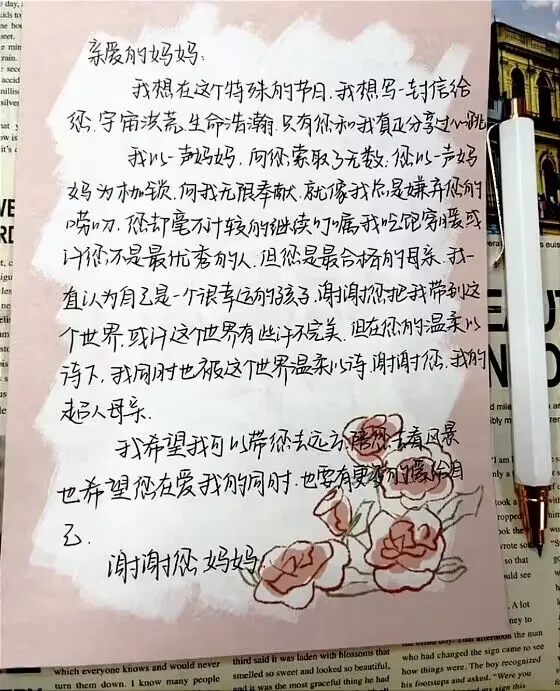 亲爱的妈妈:
我想在这个特殊的节日,我想写一封信给
您,宇宙洪荒,生命浩瀚,只有您和我真正分享过心跳
我以一声妈妈,向您索取了无数;您以一声妈
妈为枷锁,向我无限奉献,就像我总是嫌弃您的
唠叨,您却毫不计较的继续叮嘱我吃饱穿暖或
许您不是最优秀的人,但您是最合格的母亲,我一
直认为自己是一个很幸运的孩子,谢谢您把我带到这
个世界,或许这个世界有些许不完美,但在您的温柔以
待下,我同时也被这个世界温柔以待,谢谢您,我的
超人母亲.
我希望我可以带您去远方,陪您去看风景
也希望您在爱我的同时,也要有更多的爱给自
己.
谢谢您,妈妈.
which everyone knows and would never
turn them down. I know many people
third said it was laden with blossoms that
smelled so sweet and looked so beautiful,
and it was the most graceful thing he had
who had changed the sign came to see
how things were. The boy recognized
his footsteps and asked, "Were you